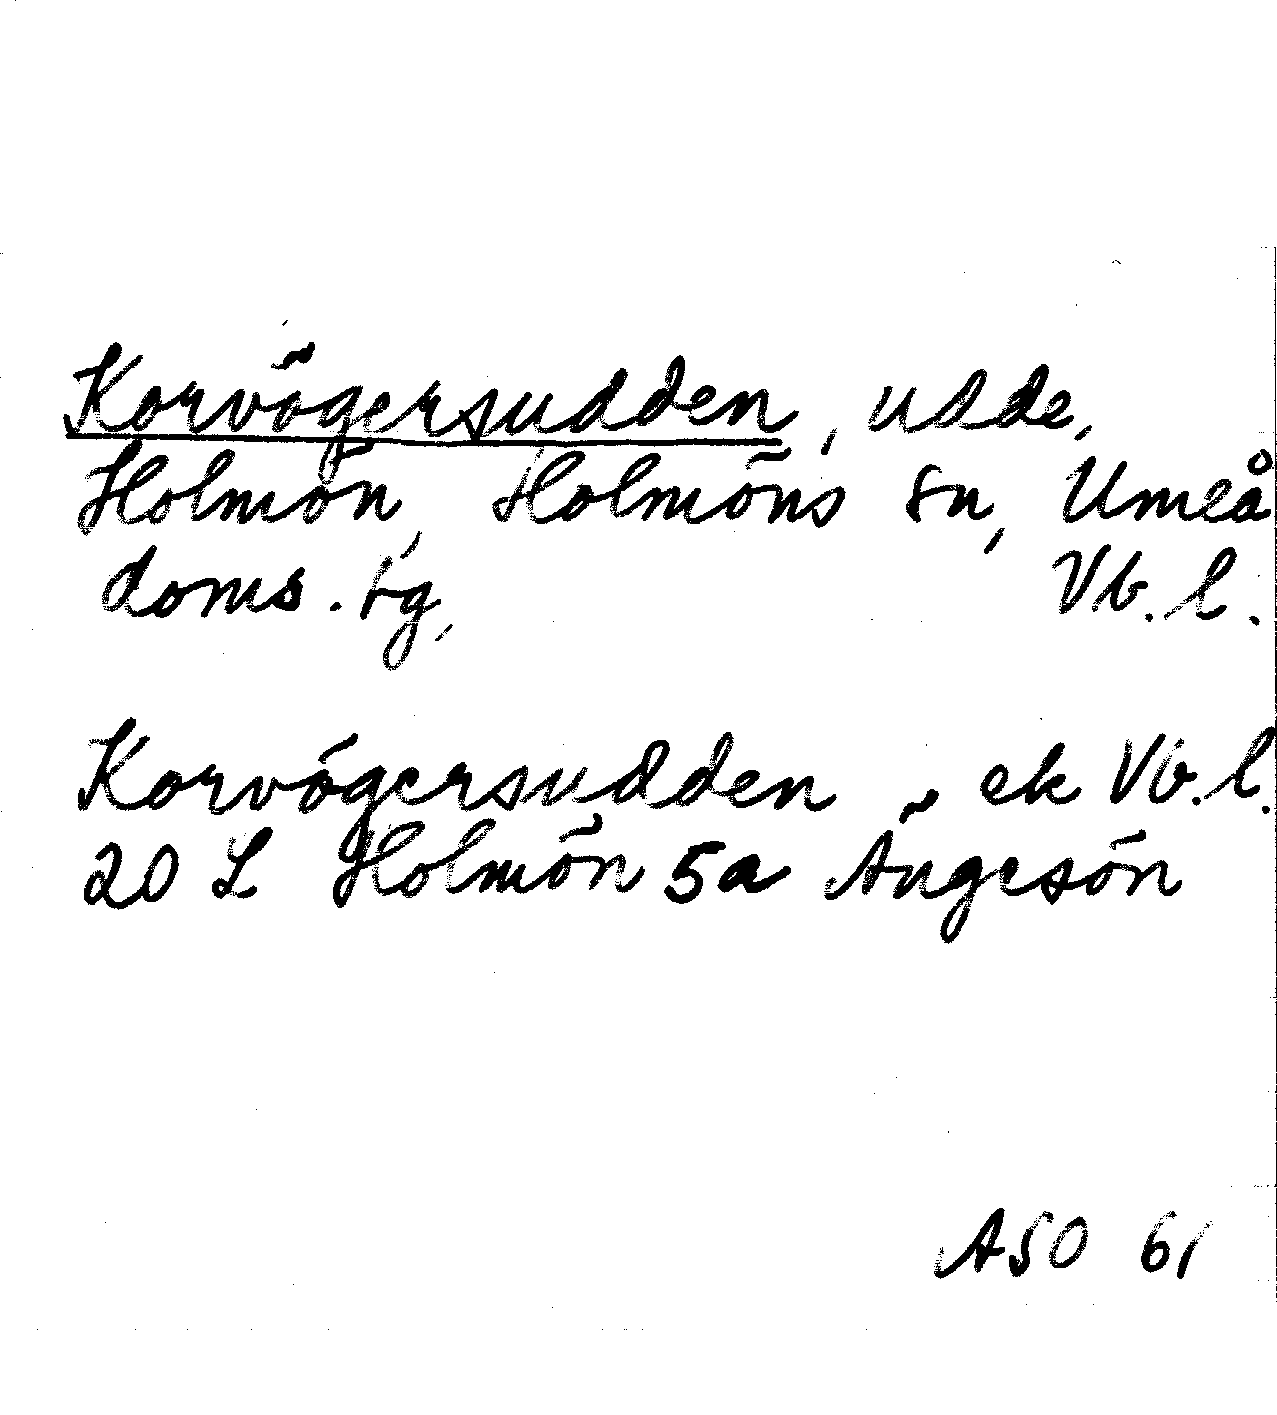 Korvögersudden, udde,
Holmön, Holmöns sn, Umeå
doms. tg, Vb. l.
Korvögersudden, ek Vb. l.
20 L Holmön 5a Ängesön
ASO 61